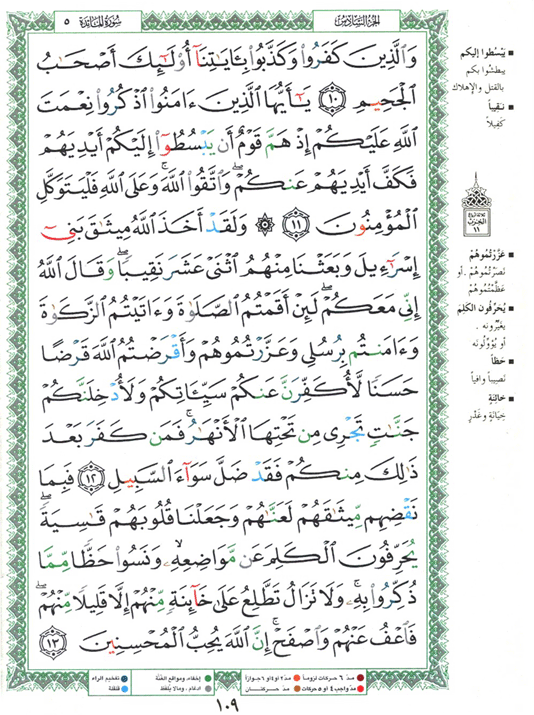 سُورَةُ المَائـدَة ٥
الجُزءُ السَّادِسُ
وَٱلَّذِينَ كَفَرُوا۟ وَكَذَّبُوا۟ بِـَٔايَـٰتِنَآ أُو۟لَـٰٓئِكَ أَصْحَـٰبُ
ٱلْجَحِيمِ ١٠ يَـٰٓأَيُّهَا ٱلَّذِينَ ءَامَنُوا۟ ٱذْكُرُوا۟ نِعْمَتَ
ٱللَّهِ عَلَيْكُمْ إِذْ هَمَّ قَوْمٌ أَن يَبْسُطُوٓا۟ إِلَيْكُمْ أَيْدِيَهُمْ
فَكَفَّ أَيْدِيَهُمْ عَنكُمْ ۖ وَٱتَّقُوا۟ ٱللَّهَ ۚ وَعَلَى ٱللَّهِ فَلْيَتَوَكَّلِ
ٱلْمُؤْمِنُونَ ١١ ۞ وَلَقَدْ أَخَذَ ٱللَّهُ مِيثَـٰقَ بَنِىٓ
إِسْرَٰٓءِيلَ وَبَعَثْنَا مِنْهُمُ ٱثْنَىْ عَشَرَ نَقِيبًا ۖ وَقَالَ ٱللَّهُ
إِنِّى مَعَكُمْ ۖ لَئِنْ أَقَمْتُمُ ٱلصَّلَوٰةَ وَءَاتَيْتُمُ ٱلزَّكَوٰةَ
وَءَامَنتُم بِرُسُلِى وَعَزَّرْتُمُوهُمْ وَأَقْرَضْتُمُ ٱللَّهَ قَرْضًا
حَسَنًا لَّأُكَفِّرَنَّ عَنكُمْ سَيِّـَٔاتِكُمْ وَلَأُدْخِلَنَّكُمْ
جَنَّـٰتٍ تَجْرِى مِن تَحْتِهَا ٱلْأَنْهَـٰرُ ۚ فَمَن كَفَرَ بَعْدَ
ذَٰلِكَ مِنكُمْ فَقَدْ ضَلَّ سَوَآءَ ٱلسَّبِيلِ ١٢ فَبِمَا
نَقْضِهِم مِّيثَـٰقَهُمْ لَعَنَّـٰهُمْ وَجَعَلْنَا قُلُوبَهُمْ قَـٰسِيَةً ۖ
يُحَرِّفُونَ ٱلْكَلِمَ عَن مَّوَاضِعِهِۦ ۙ وَنَسُوا۟ حَظًّا مِّمَّا
ذُكِّرُوا۟ بِهِۦ ۚ وَلَا تَزَالُ تَطَّلِعُ عَلَىٰ خَآئِنَةٍ مِّنْهُمْ إِلَّا قَلِيلًا مِّنْهُمْ ۖ
فَٱعْفُ عَنْهُمْ وَٱصْفَحْ ۚ إِنَّ ٱللَّهَ يُحِبُّ ٱلْمُحْسِنِينَ ١٣
■ يَبْسُطوا إليكم
يبطشُوا بكم
بالقتل والإهلاك
■ نَقِيباً
كَفِيلاً
ثلاثة أرباع
الحزب
١١
■ عَزَّرْتُمُوهُمْ
نَصَرْتُمُوهُمْ . أو
عَظَّمْتُمُوهُمْ
■ يُحَرِّفُون الكَلِمَ
يغيِّرونه .
أو يُؤَوِّلُونه
■ حَظاً
نَصِيباً وافياً
■ خائِنَةٍ
خِيَانَةٍ وغَدْرٍ
مدّ ٦ حركات لزوماً مدّ ٢ أو ٤ أو ٦ جوازاً إخفاء، ومواقع الغُنَّة تفخيم الراء
مدّ واجب ٤ أو ٥ حركات مدّ حركتان إدغام ، ومالا يُلفَظ قلقلة
١٠٩